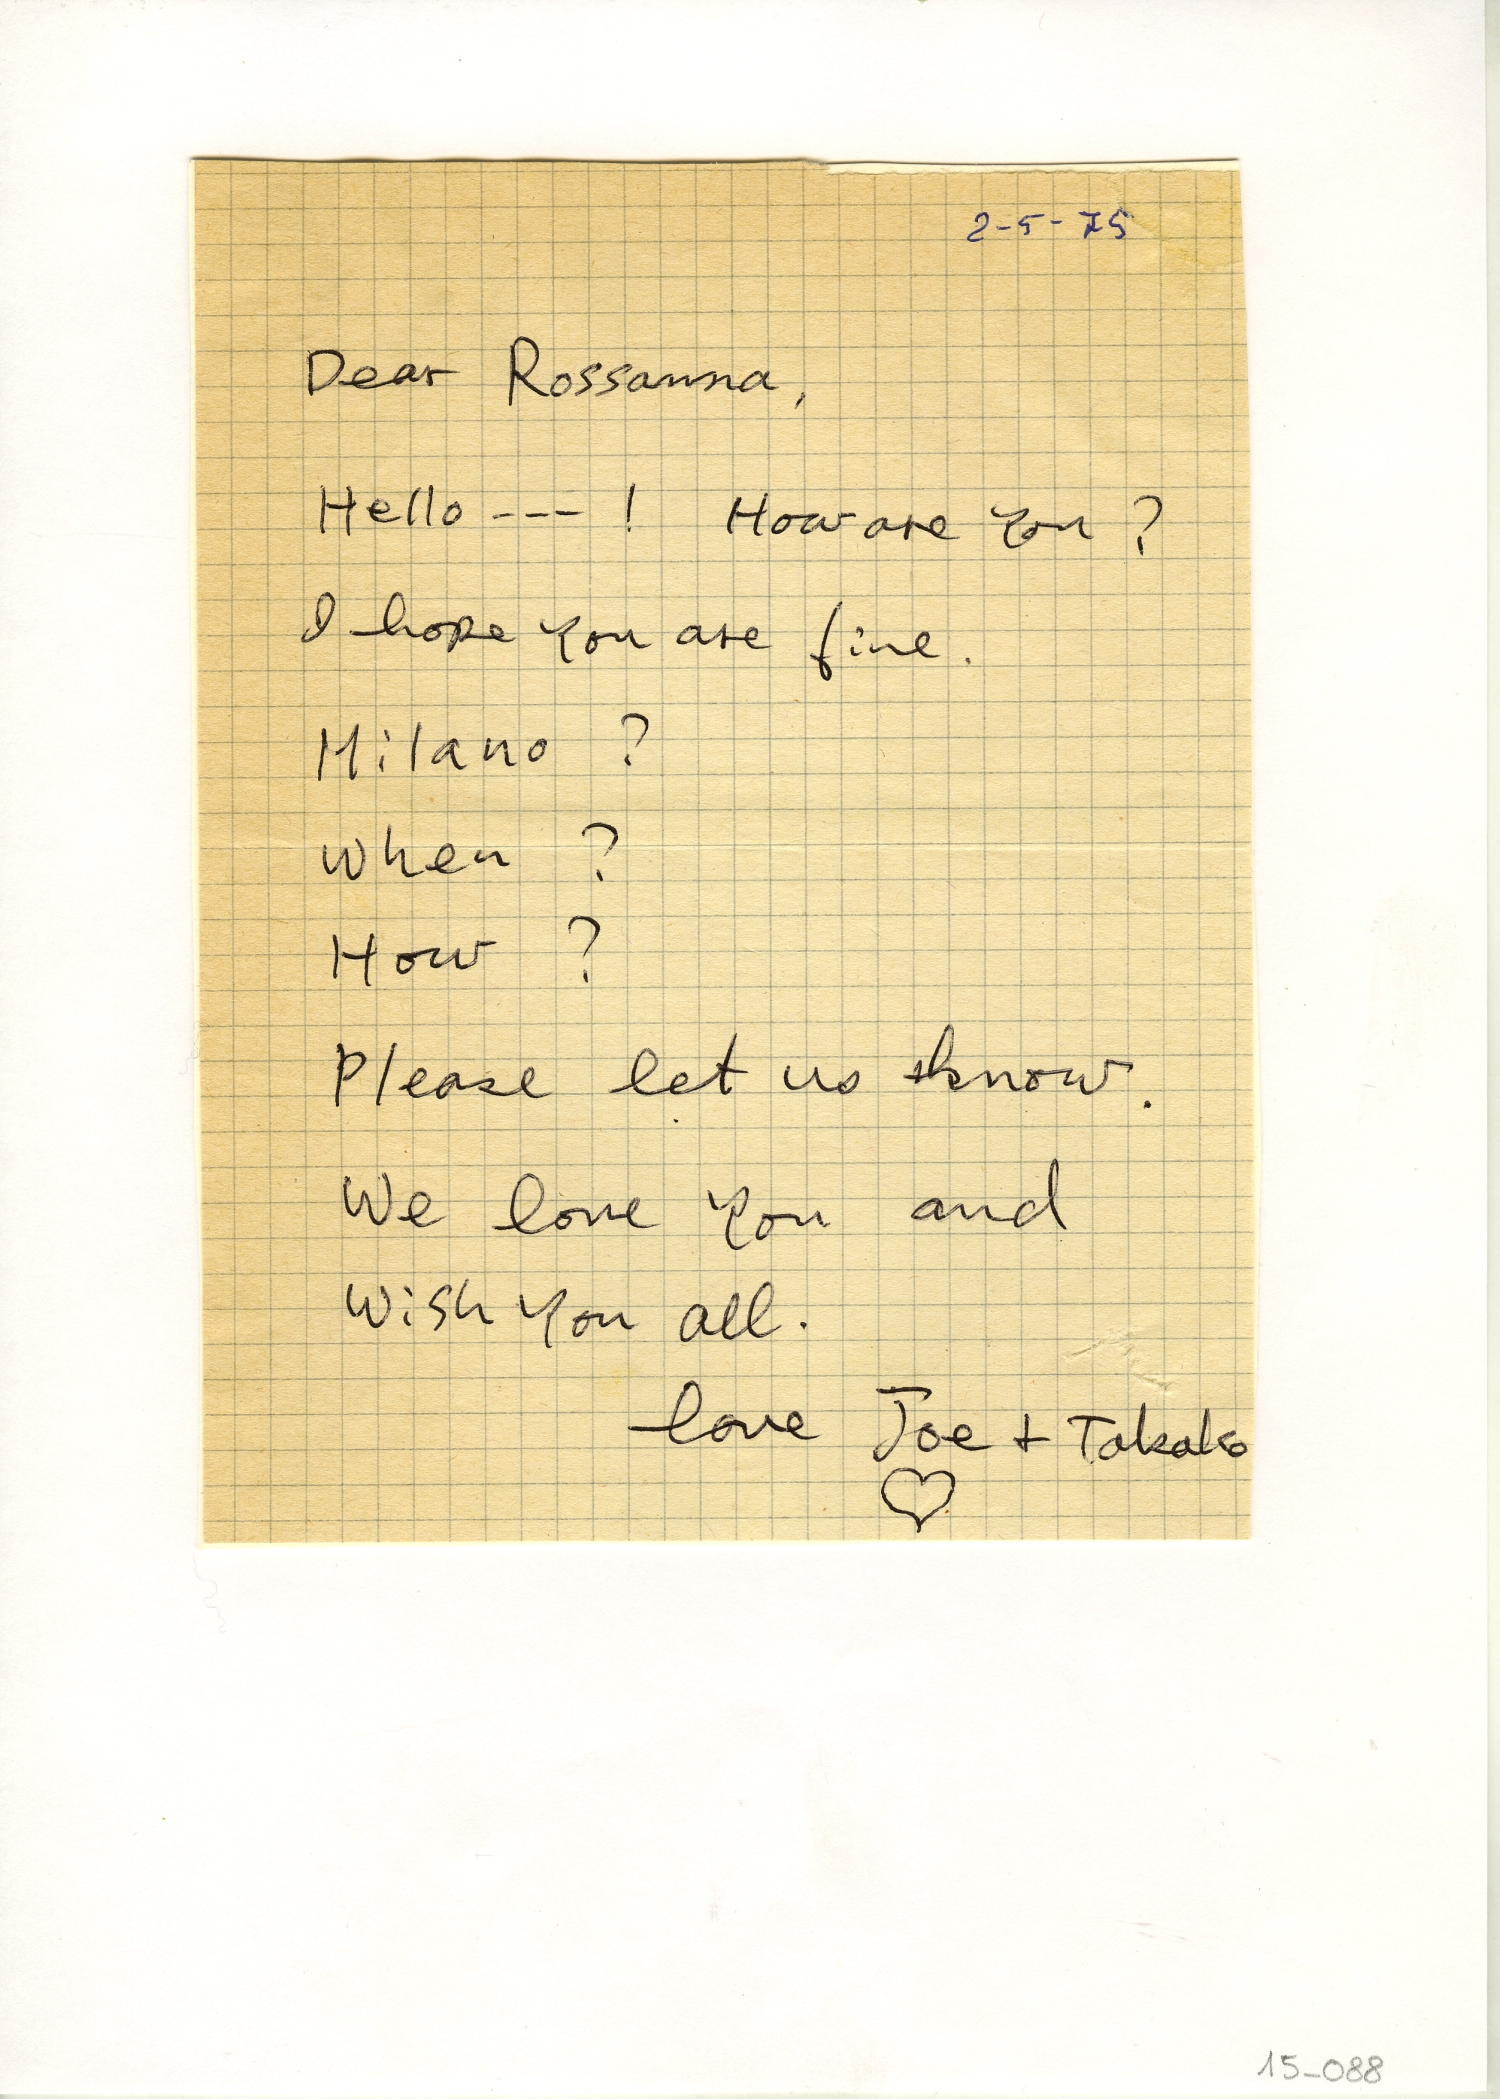 2-5-75
Dear Rossanna,
Hello --- ! How are you ?
I hope you are fine.
Milano ?
When ?
How ?
Please let us know.
We love you and
Wish you all.
love Joe + Takako
♡
15_088